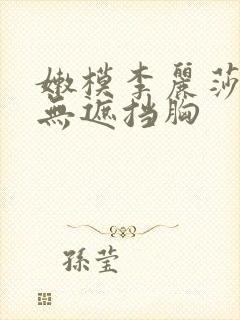 嫩模李麗莎
無遮挡胸
孫莹